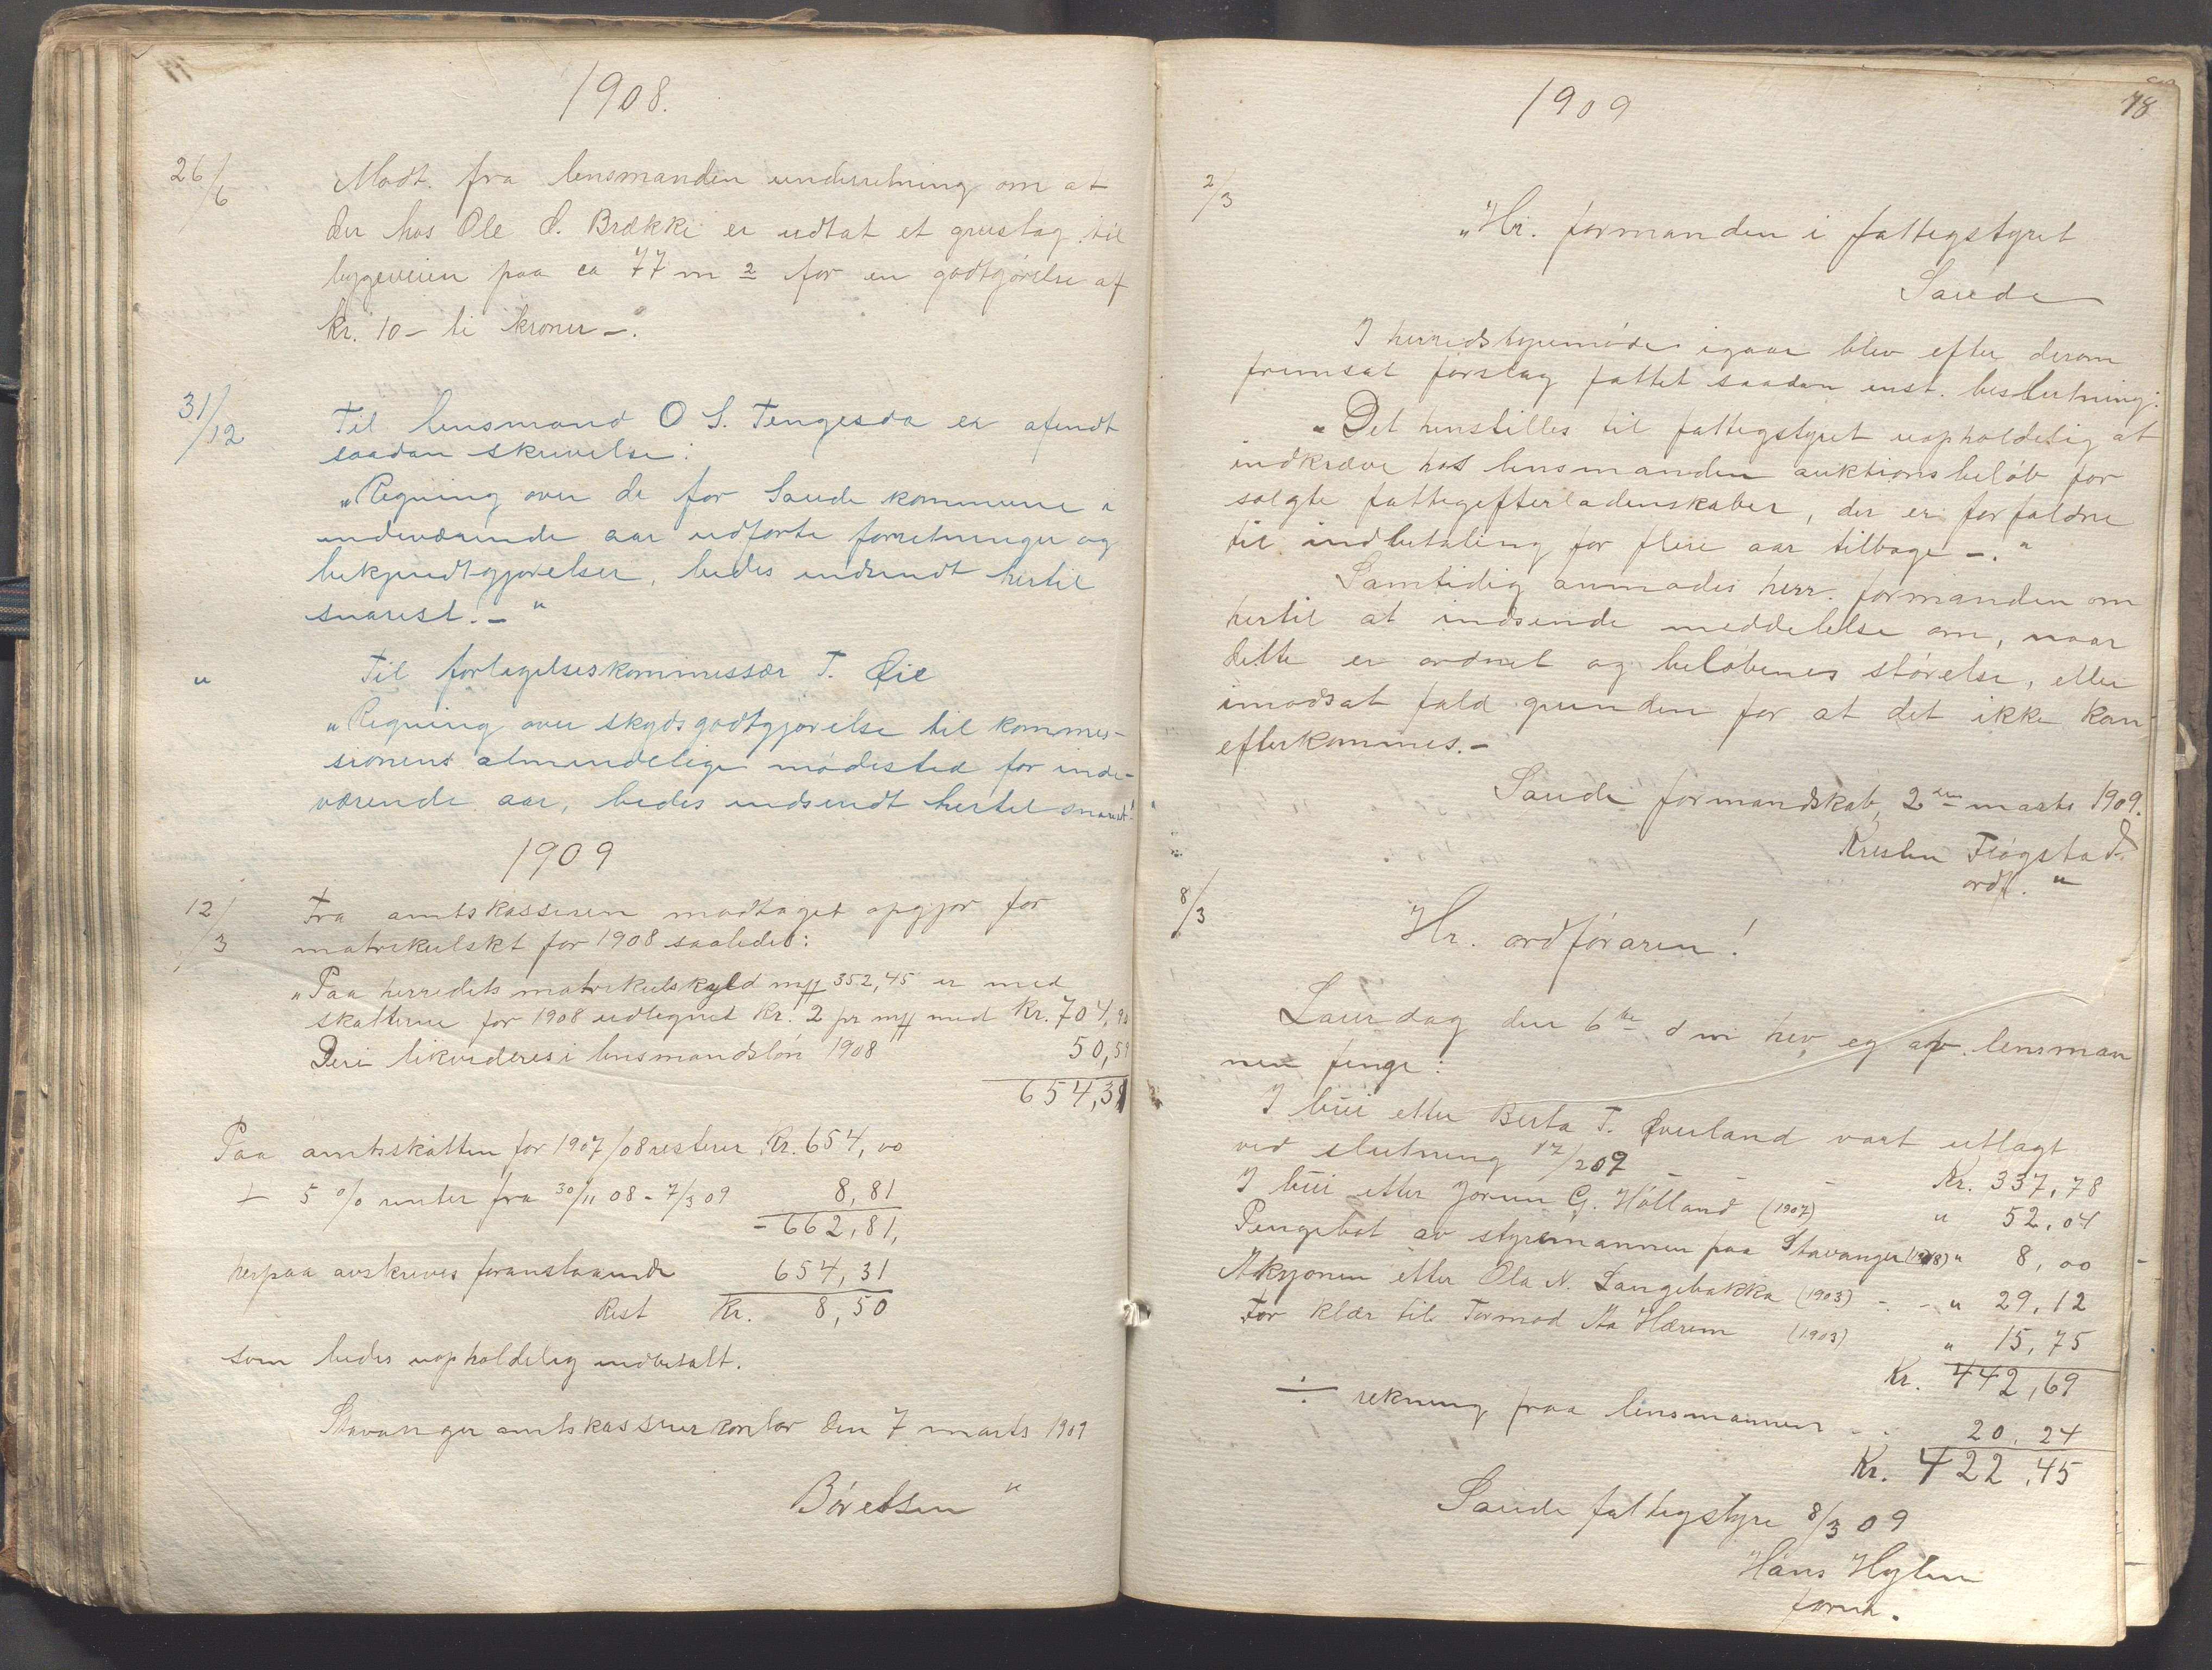 1908.
26/6 Modt. fra lensmanden underretning om at
der hos Ole S. Brække er udtat et grustag til
bygeveien paa ca 77 m 2 for en godtgörelse af
kr. 10 – ti kroner –.
31/12 Til lensmand O S. Tengesda er afsendt
saadan skrivelse:
"Regning over de for Saude kommune i
indeværende aar udførte forretninger og
bekjendtgjørelser, bedes indsendt hertil
snarest. – "
" Til forligelseskommissær T. Øie
"Regning over skydsgodtgjørelse til kommis-
sionens almindelige mødested for inde-
værende aar, bedes indsendt hertil snarest!
1909
12/3 Fra amtskasseren modtaget opgjør for
matrikulskt for 1908 saaledes:
"Paa herredets matrikulskyld mrk 352,45 er med
skatterne for 1908 udlignet Kr. 2 pr mrk med Kr. 704,90
Deri likvideres i lensmandsløn 1908 50,59
654,31
Paa amtsskatten for 1907/08 resterer Kr. 654,00
+ 5 % renter fra 30/11 08 - 7/3 09 8,81
- 662,81,
herpaa avskrives foranstaaende 654,31
Rest Kr. 8,50
som bedes uopholdelig indbetalt.
Stavanger amtskasserkontor den 7 marts 1909
Böretsen "
78
1909
2/3 "Hr. formanden i fattigstyret
Saude
I herredstyremöde igaar blev efter derom
fremsat forslag fattet saadan enst. beslutning:
"Det henstilles til fattigstyret uopholdelig at
indkræve hos lensmanden auktionsbelöb for
solgte fattigefterladenskaber, der er forfaldne
til indbetaling for flere aar tilbage –. "
Samtidig anmodes herr. formanden om
hertil at indsende meddelelse om, naar
dette er ordnet og belöbenes störelse, eller
imodsat fald grunden for at det ikke kan
efterkommes. –
Saude formandskab, 2den marts 1909.
Kristen Fløgstad
ordf. "
8/3 Hr. ordföraren!
Laurdag den 6te d m hev eg av lensman
nen fenge:
I búi etter Berta T. Øverland vart utlagt
ved slutning 17/2 09 – – Kr. 337,78
I búi etter Jorunn G. Hólland (1907) " 52,04
Pengebot av styremannen paa Stavanger (1908) " 8,00
Aksjonen etter Ola N. Langebakka (1903) - - " 29,12
For klær til Tormod Aa Hærem (1903) " 15,75
Kr. 442,69
÷ rekning fraa lensmannen - - 20,24
Kr. 422,45
Saude fattigstyre 8/3 09
Hans Hylen
form.